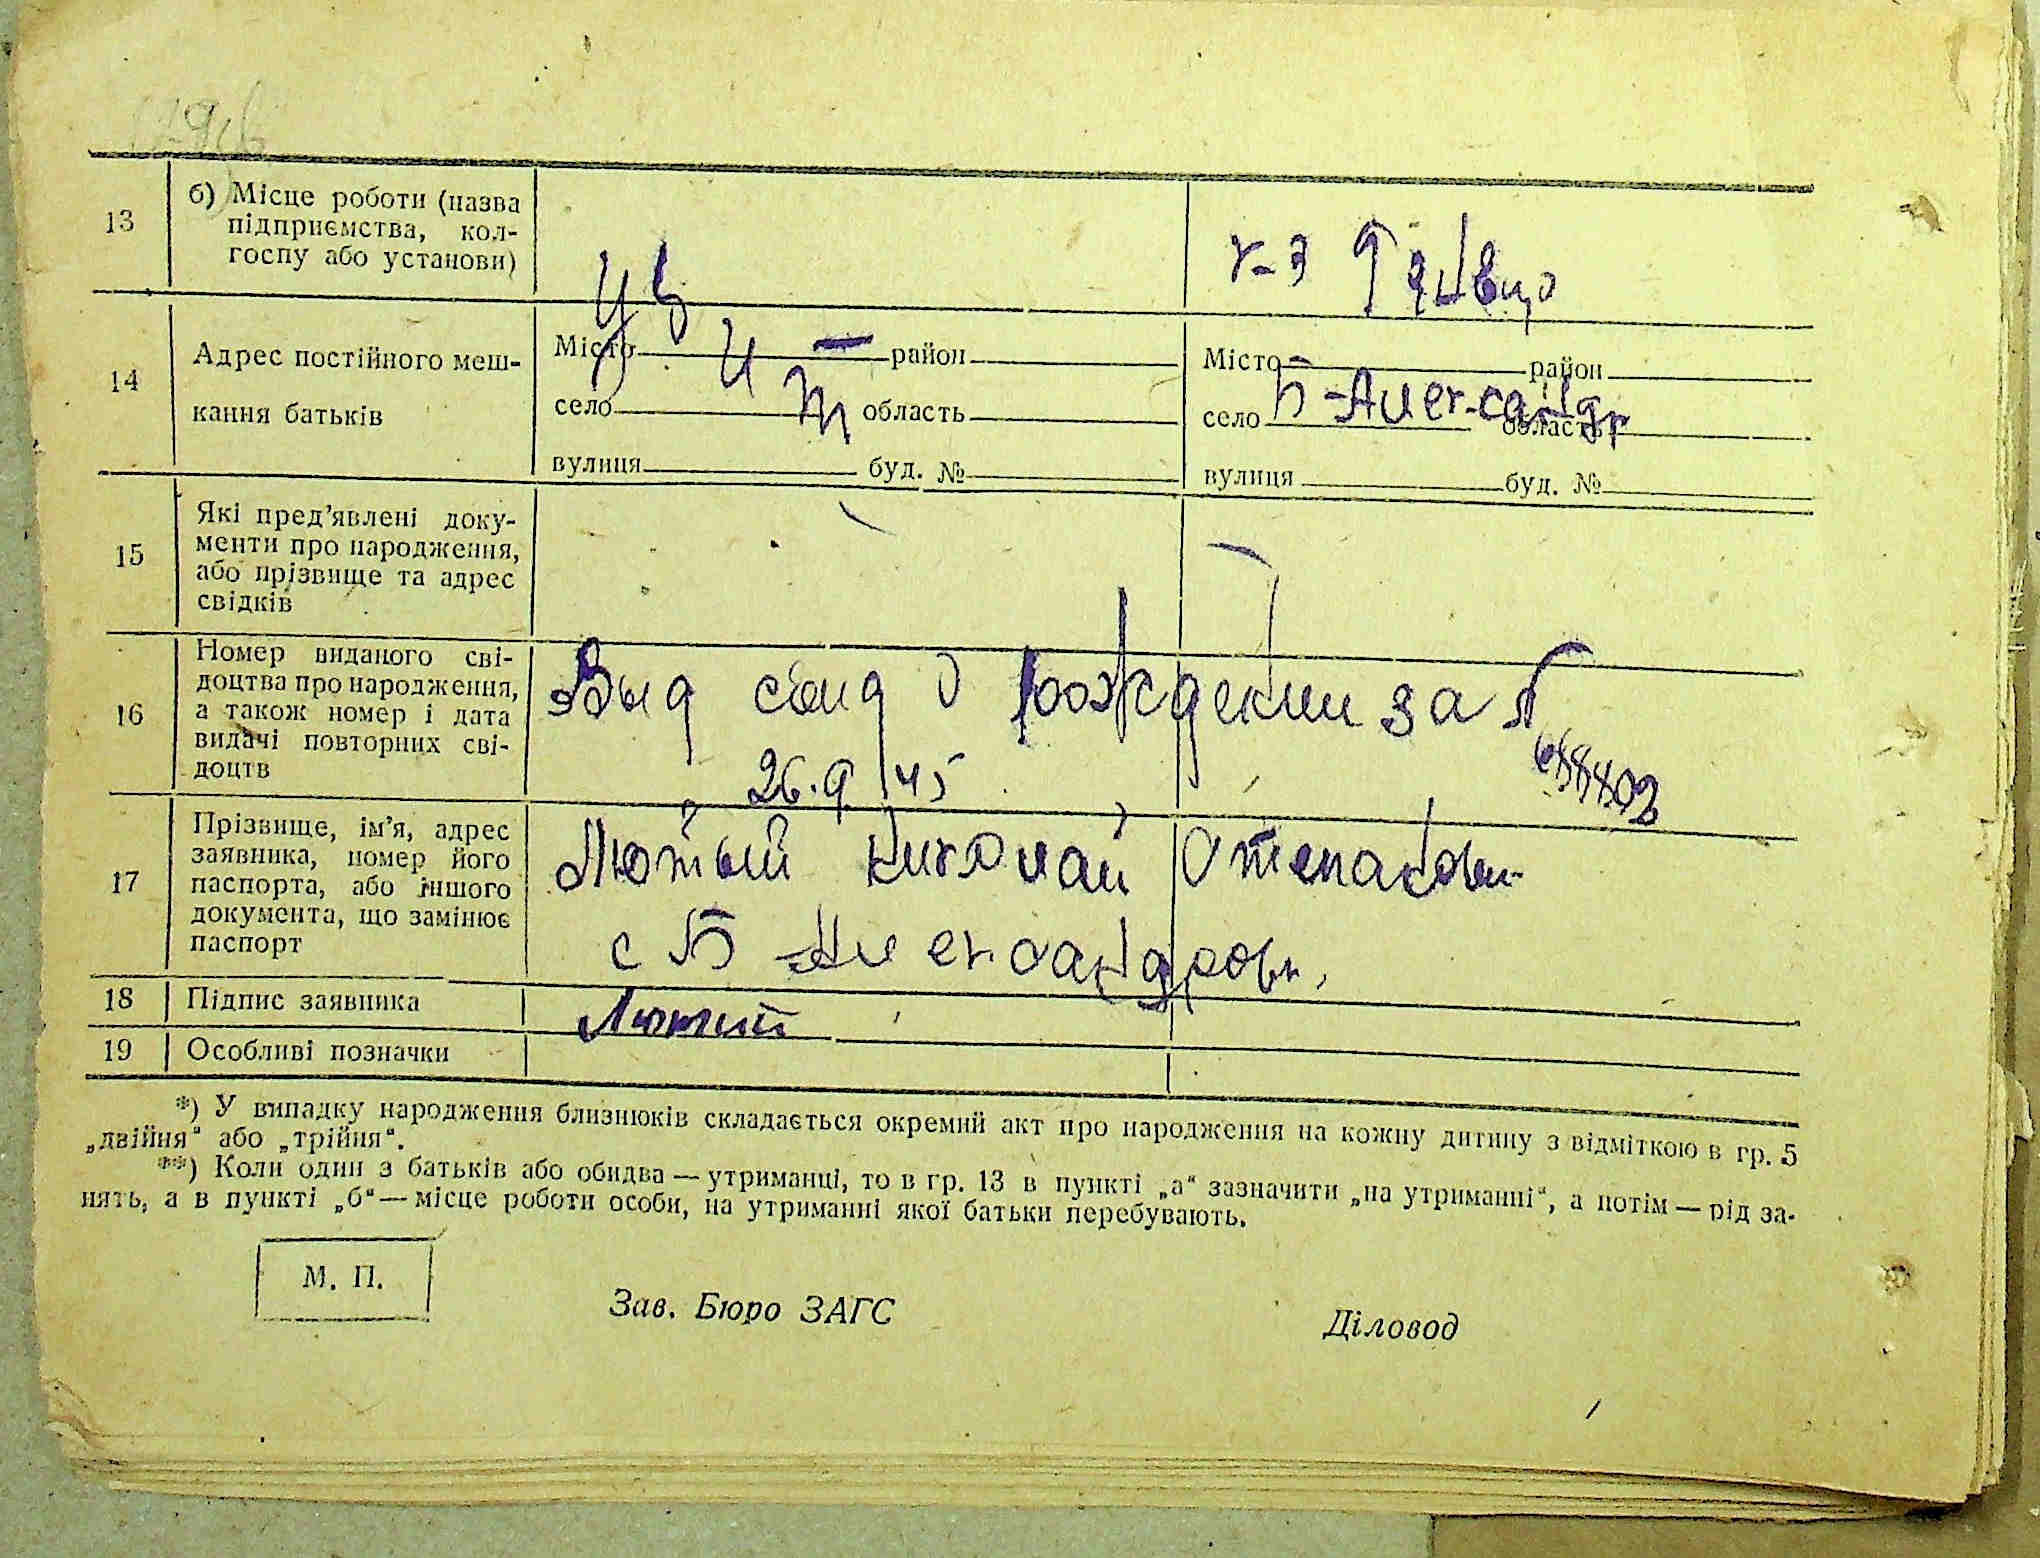 13
б) Місце роботи (назва
підприємства, кол-
госпу або установи)
к-з
14
Адрес постійного меш-
кання батьків
Місто район
село область
вулиця буд. №
Місто район
село Б-Александр область
вулиця буд. №
15
Які пред’явлені доку-
менти про народження,
або прізвище та адрес
свідків
16
Номер виданого сві-
доцтва про народження,
а також номер і дата
видачі повторних сві-
доцтв
Выд свид о рождении за №
26.9 45
17
Прізвище, ім’я, адрес
заявника, номер його
паспорта, або іншого
документа, що замінює
паспорт
Лютый Николай Степанови-
с Б-Александровк
18
Підпис заявника
Лютий
19
Особливі позначки
*) У випадку народження близнюків складається окремий акт про народження на кожну дитину з відміткою в гр. 5
„двійня“ або „трійня“.
**) Коли один з батьків або обидва — утриманці, то в гр. 13 в пункті „а“ зазначити „на утриманні“, а потім — рід за-
нять, а в пункті „б“ — місце роботи особи, на утриманні якої батьки перебувають.
М. П.
Зав. Бюро ЗАГС
Діловод